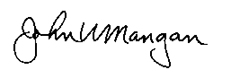 John W Mangan